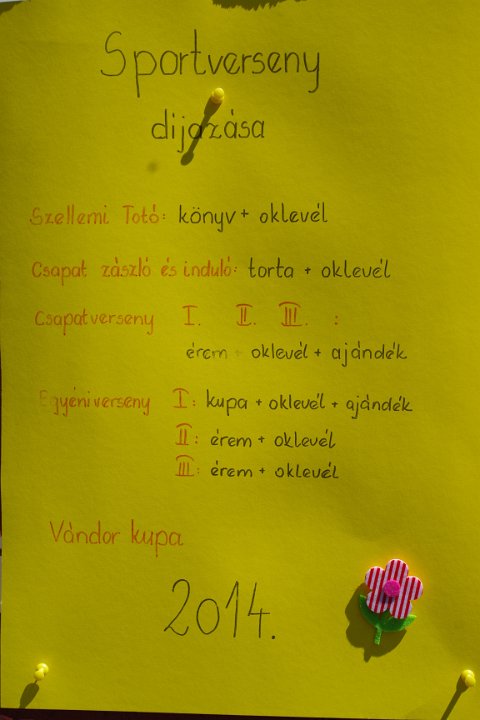 Sportverseny
dijazása
Szellemi Totó: könyv + oklevél
Csapat zászló és induló: torta + oklevél
Csapatverseny I. II. III. :
érem + oklevél + ajándék
Egyéniverseny I: kupa + oklevél + ajándék
II: érem + oklevél
III: érem + oklevél
Vándor kupa
2014.